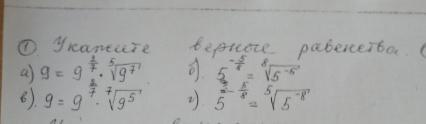 ① Укажите верные равенства.
а) 9 = 9^{2/7} · ⁵√9⁷ б). 5^{-5/8} = ⁸√5^{-5}
в). 9 = 9^{2/7} · ⁷√9⁵ г). 5^{-5/8} = ⁵√5^{-8}